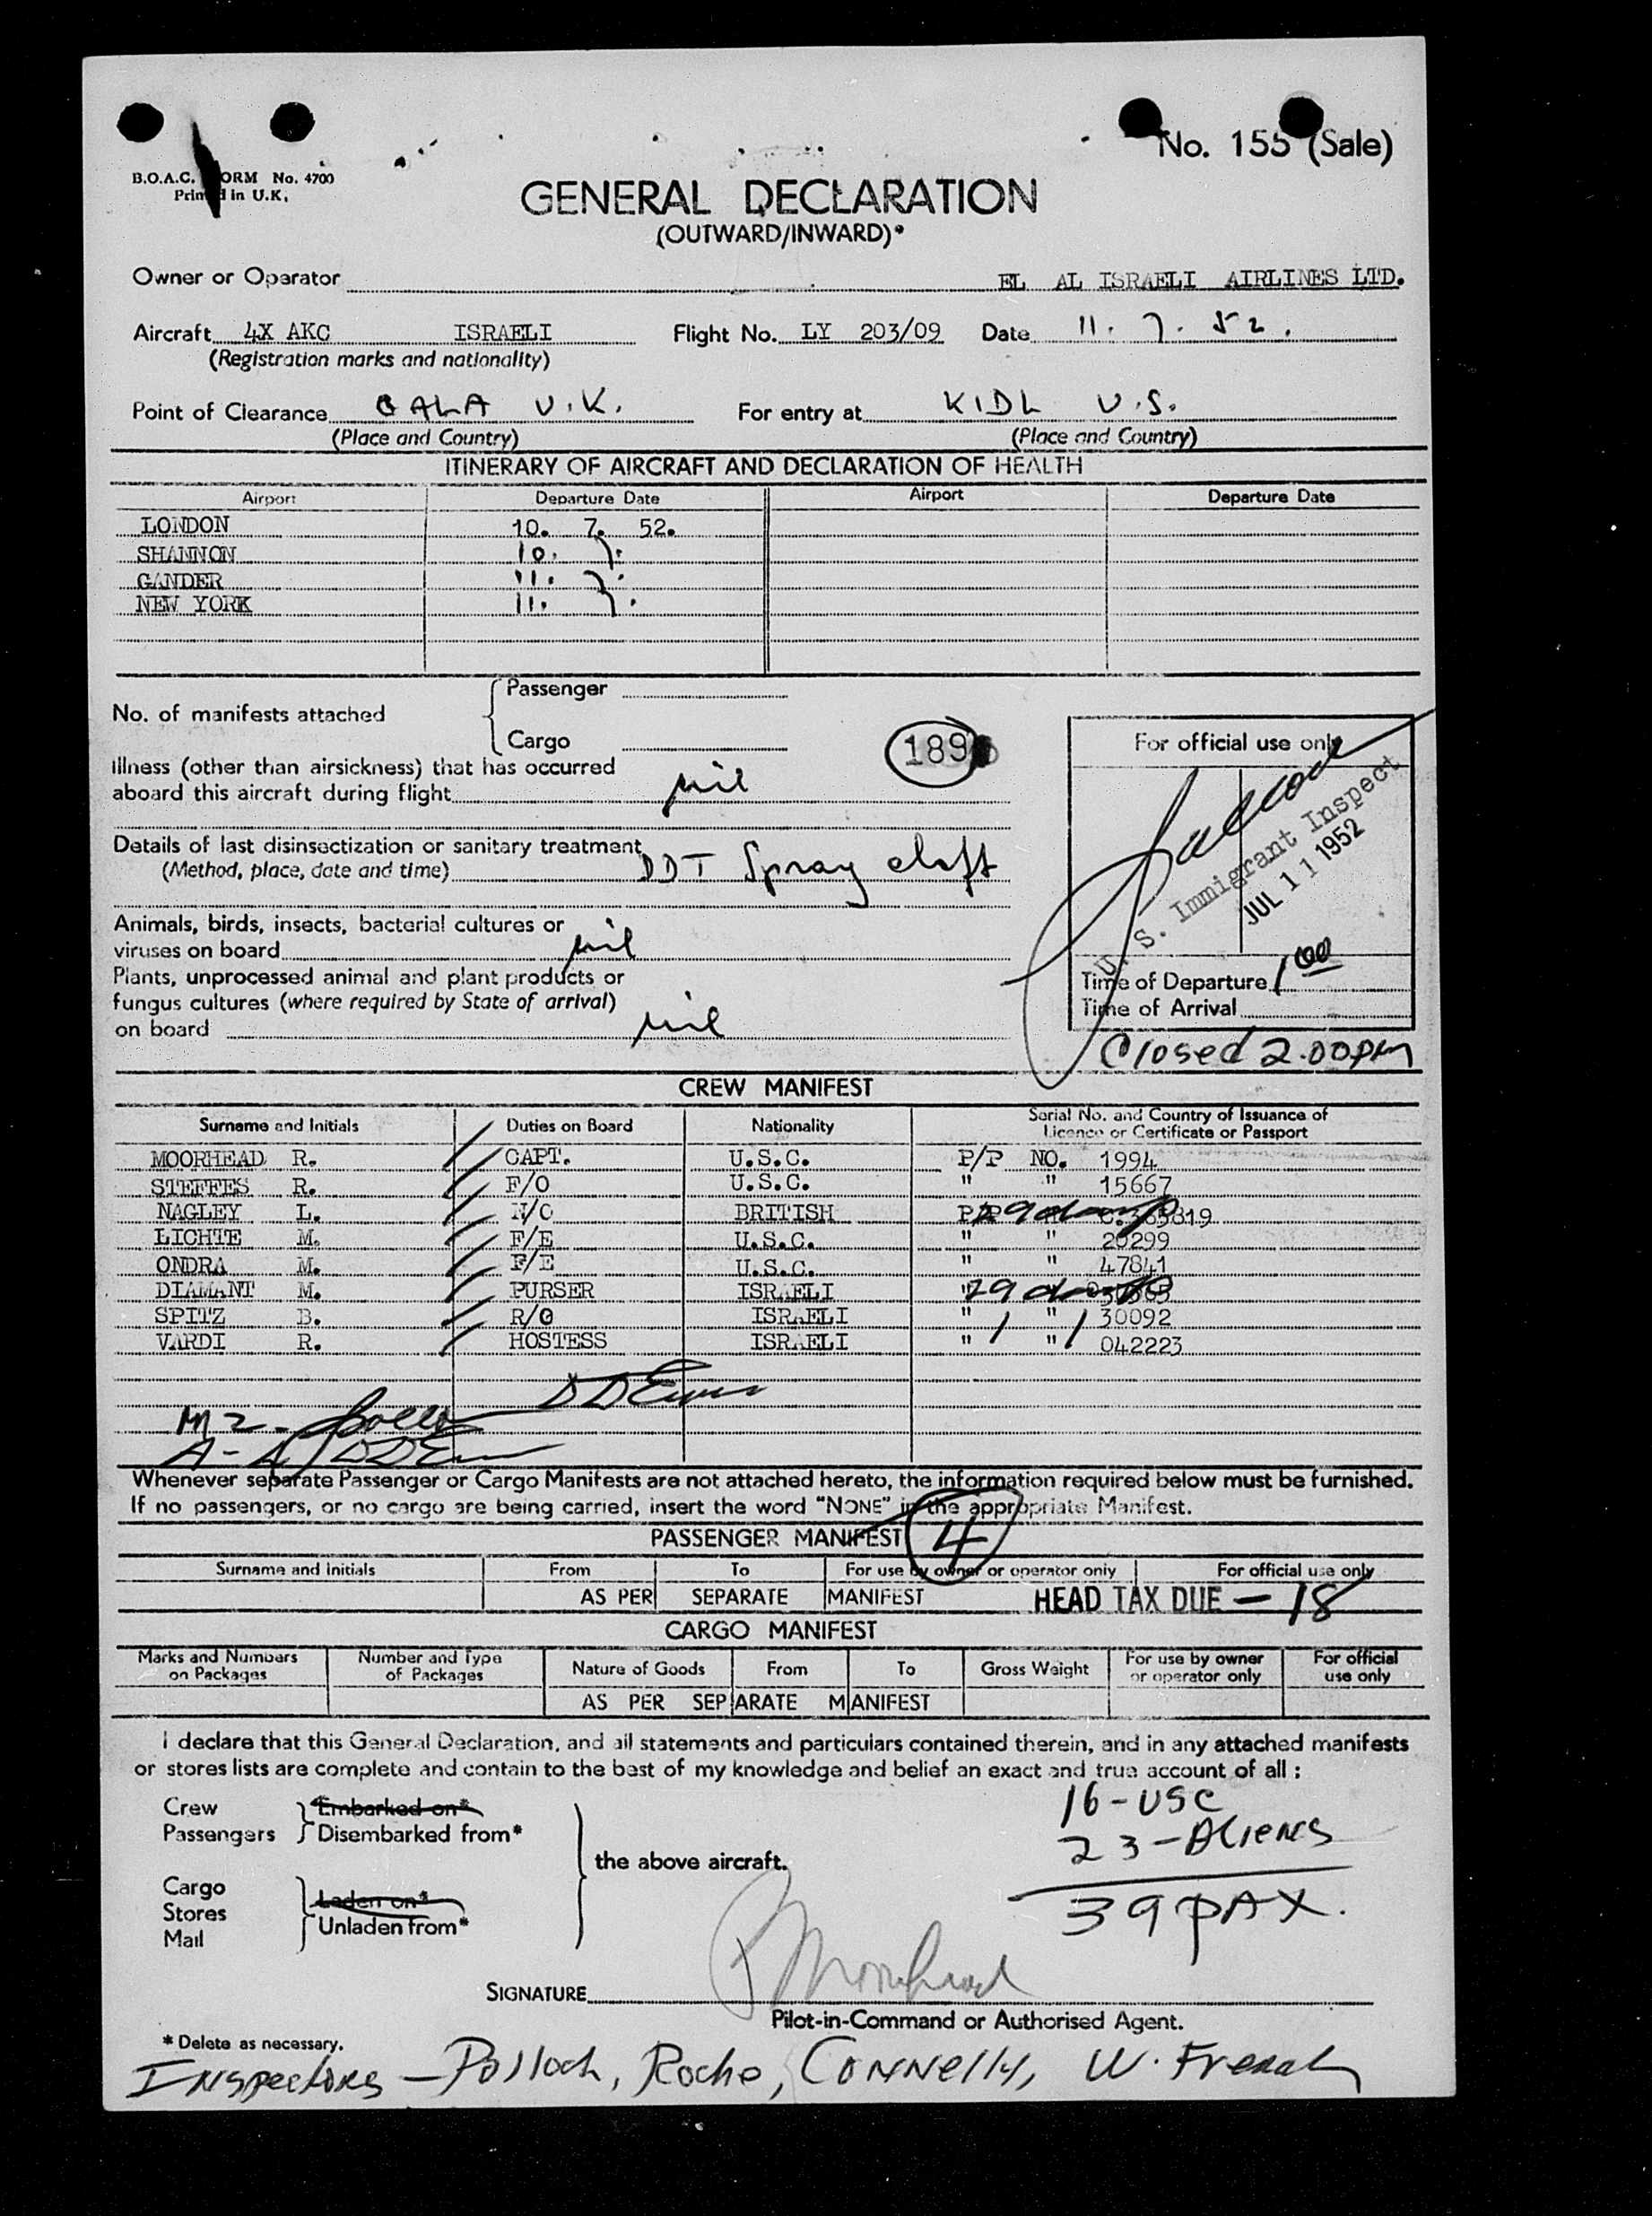 No. 155 (Sale)
B.O.A.C. FORM No. 4700
Printed in U.K.
GENERAL DECLARATION
(OUTWARD/INWARD)*
Owner or Operator EL AL ISRAELI AIRLINES LTD.
Aircraft 4X AKC ISRAELI Flight No. LY 203/09 Date 11. 7. 52.
(Registration marks and nationality)
Point of Clearance GALA U.K. For entry at KIDL U.S.
(Place and Country) (Place and Country)
ITINERARY OF AIRCRAFT AND DECLARATION OF HEALTH
Airport Departure Date Airport Departure Date
LONDON 10. 7. 52.
SHANNON 10. 7.
GANDER 11. 7.
NEW YORK 11. 7.
No. of manifests attached
Passenger
Cargo
189
Illness (other than airsickness) that has occurred
aboard this aircraft during flight nil
Details of last disinsectization or sanitary treatment
(Method, place, date and time) DDT Spray
Animals, birds, insects, bacterial cultures or
viruses on board nil
Plants, unprocessed animal and plant products or
fungus cultures (where required by State of arrival)
on board nil
For official use only
U. S. Immigrant Inspect
JUL 11 1952
Time of Departure 1 00
Time of Arrival
Closed 2.00pm
CREW MANIFEST
Surname and Initials Duties on Board Nationality Serial No. and Country of Issuance of
Licence or Certificate or Passport
MOORHEAD R. CAPT. U.S.C. P/P NO. 1994
STEFFES R. F/O U.S.C. " " 15667
NAGLEY L. N/O BRITISH 29 days
LICHTE M. F/E U.S.C. " " 20299
ONDRA M. F/E U.S.C. " " 47841
DIAMANT M. PURSER ISRAELI 29 days
SPITZ B. R/O ISRAELI " " 30092
VARDI R. HOSTESS ISRAELI " " 042223
Whenever separate Passenger or Cargo Manifests are not attached hereto, the information required below must be furnished.
If no passengers, or no cargo are being carried, insert the word "NONE" in the appropriate Manifest.
PASSENGER MANIFEST 4
Surname and Initials From To For use by owner or operator only For official use only
AS PER SEPARATE MANIFEST HEAD TAX DUE - 18
CARGO MANIFEST
Marks and Numbers on Packages Number and Type of Packages Nature of Goods From To Gross Weight For use by owner or operator only For official use only
AS PER SEPARATE MANIFEST
I declare that this General Declaration, and all statements and particulars contained therein, and in any attached manifests
or stores lists are complete and contain to the best of my knowledge and belief an exact and true account of all :
Crew Embarked on*
Passengers Disembarked from*
the above aircraft.
Cargo
Stores
Mail
Laden on*
Unladen from*
16-USC
23-Aliens
39 PAX.
SIGNATURE R Moorhead
Pilot-in-Command or Authorised Agent.
* Delete as necessary.
Inspectors - Pollock, Roche, Connelly, W. French